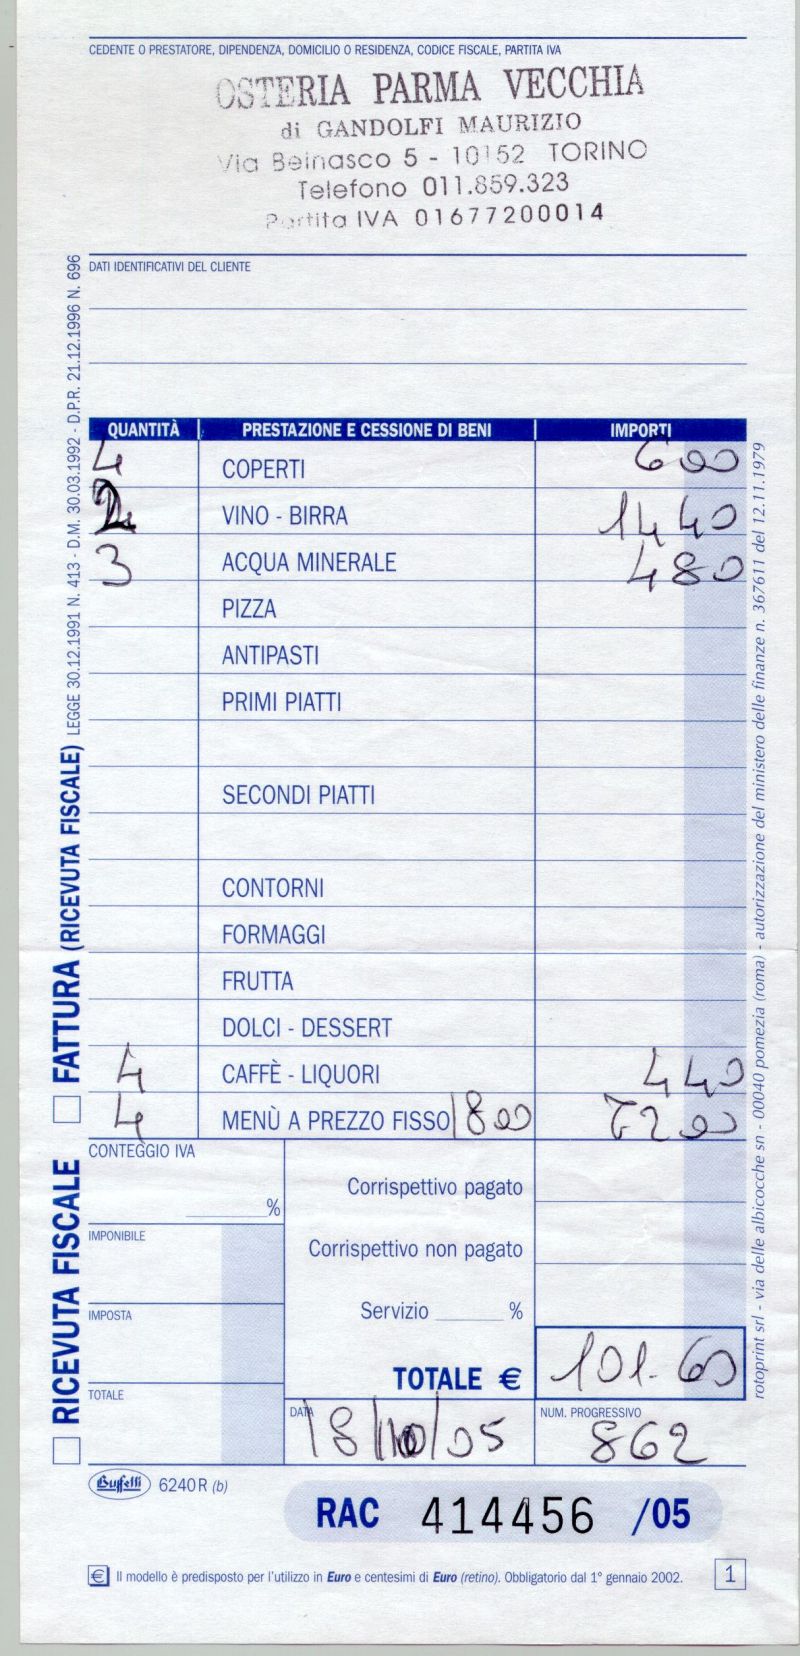 CEDENTE O PRESTATORE, DIPENDENZA, DOMICILIO O RESIDENZA, CODICE FISCALE, PARTITA IVA
OSTERIA PARMA VECCHIA
di GANDOLFI MAURIZIO
Via Beinasco 5 - 10152 TORINO
Telefono 011.859.323
Partita IVA 01677200014
DATI IDENTIFICATIVI DEL CLIENTE
QUANTITÀ PRESTAZIONE E CESSIONE DI BENI IMPORTI
4 COPERTI 600
2 VINO - BIRRA 1440
3 ACQUA MINERALE 480
PIZZA
ANTIPASTI
PRIMI PIATTI
SECONDI PIATTI
CONTORNI
FORMAGGI
FRUTTA
DOLCI - DESSERT
4 CAFFÈ - LIQUORI 440
4 MENÙ A PREZZO FISSO 1800 7200
CONTEGGIO IVA
%
IMPONIBILE
IMPOSTA
TOTALE
Corrispettivo pagato
Corrispettivo non pagato
Servizio ______ %
TOTALE € 101.60
DATA 18/10/05
NUM. PROGRESSIVO 862
Buffetti 6240 R (b)
RAC 414456 /05
€ Il modello è predisposto per l'utilizzo in Euro e centesimi di Euro (retino). Obbligatorio dal 1° gennaio 2002. 1
RICEVUTA FISCALE FATTURA (RICEVUTA FISCALE) LEGGE 30.12.1991 N. 413 - D.M. 30.03.1992 - D.P.R. 21.12.1996 N. 696
rotoprint srl - via delle albicocche sn - 00040 pomezia (roma) - autorizzazione del ministero delle finanze n. 367611 del 12.11.1979